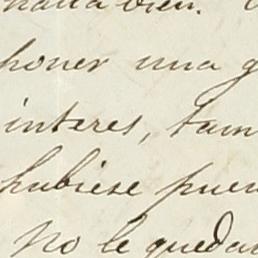 halla bien.
poner una g
interes, tam
hubiese pues
No le quedar